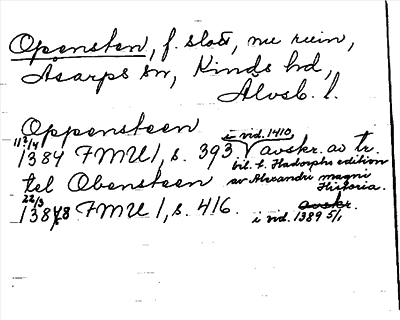 Opensten, f. slott, nu ruin,
Åsarps sn, Kinds hd,
Älvsb. l.
Oppensteen
i vid. 1410,
11⅔/4
1384 FMU 1, s. 393 avskr. av tr.
bil. t. Hadorphs edition
tel Obensteen av Alexandri magni
Historia.
22/3
1388 FMU 1, s. 416. avskr.
i vid. 1389 5/1